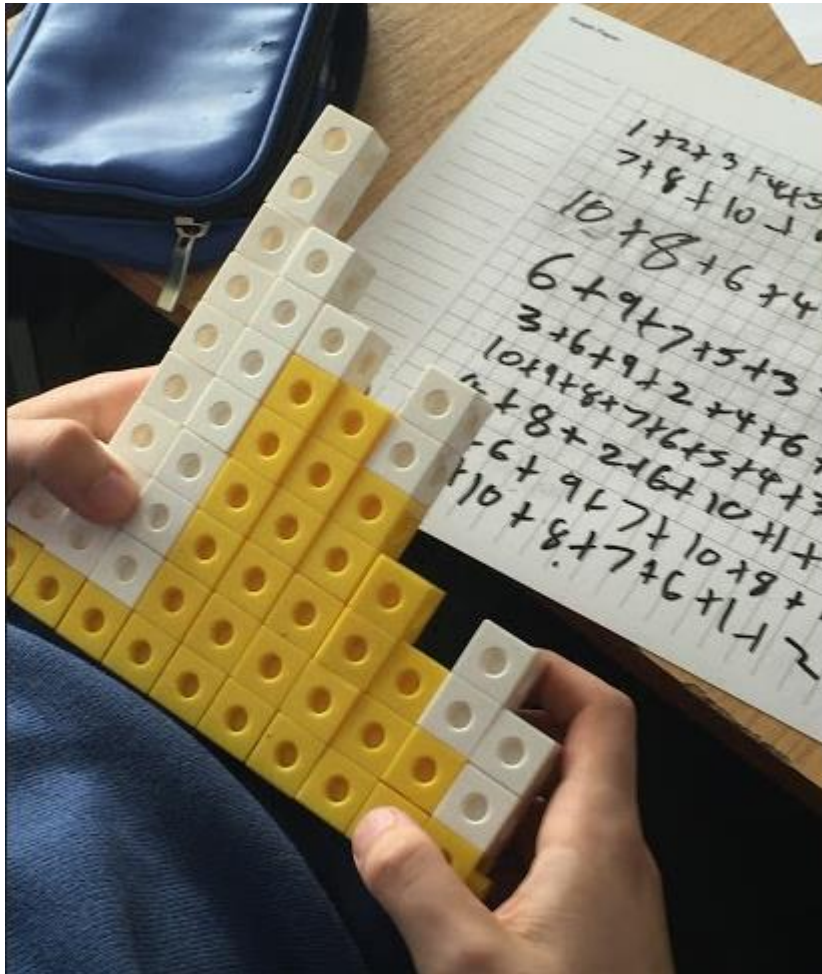 Graph Paper
1+2+3+4+5
7+8+10+
10+8+6+4
6+9+7+5+3
3+6+9+2+4+6+
10+9+8+7+6+5+4+3
+8+2+6+10+1+
6+9+7+10+8+
+10+8+7+6+1+2